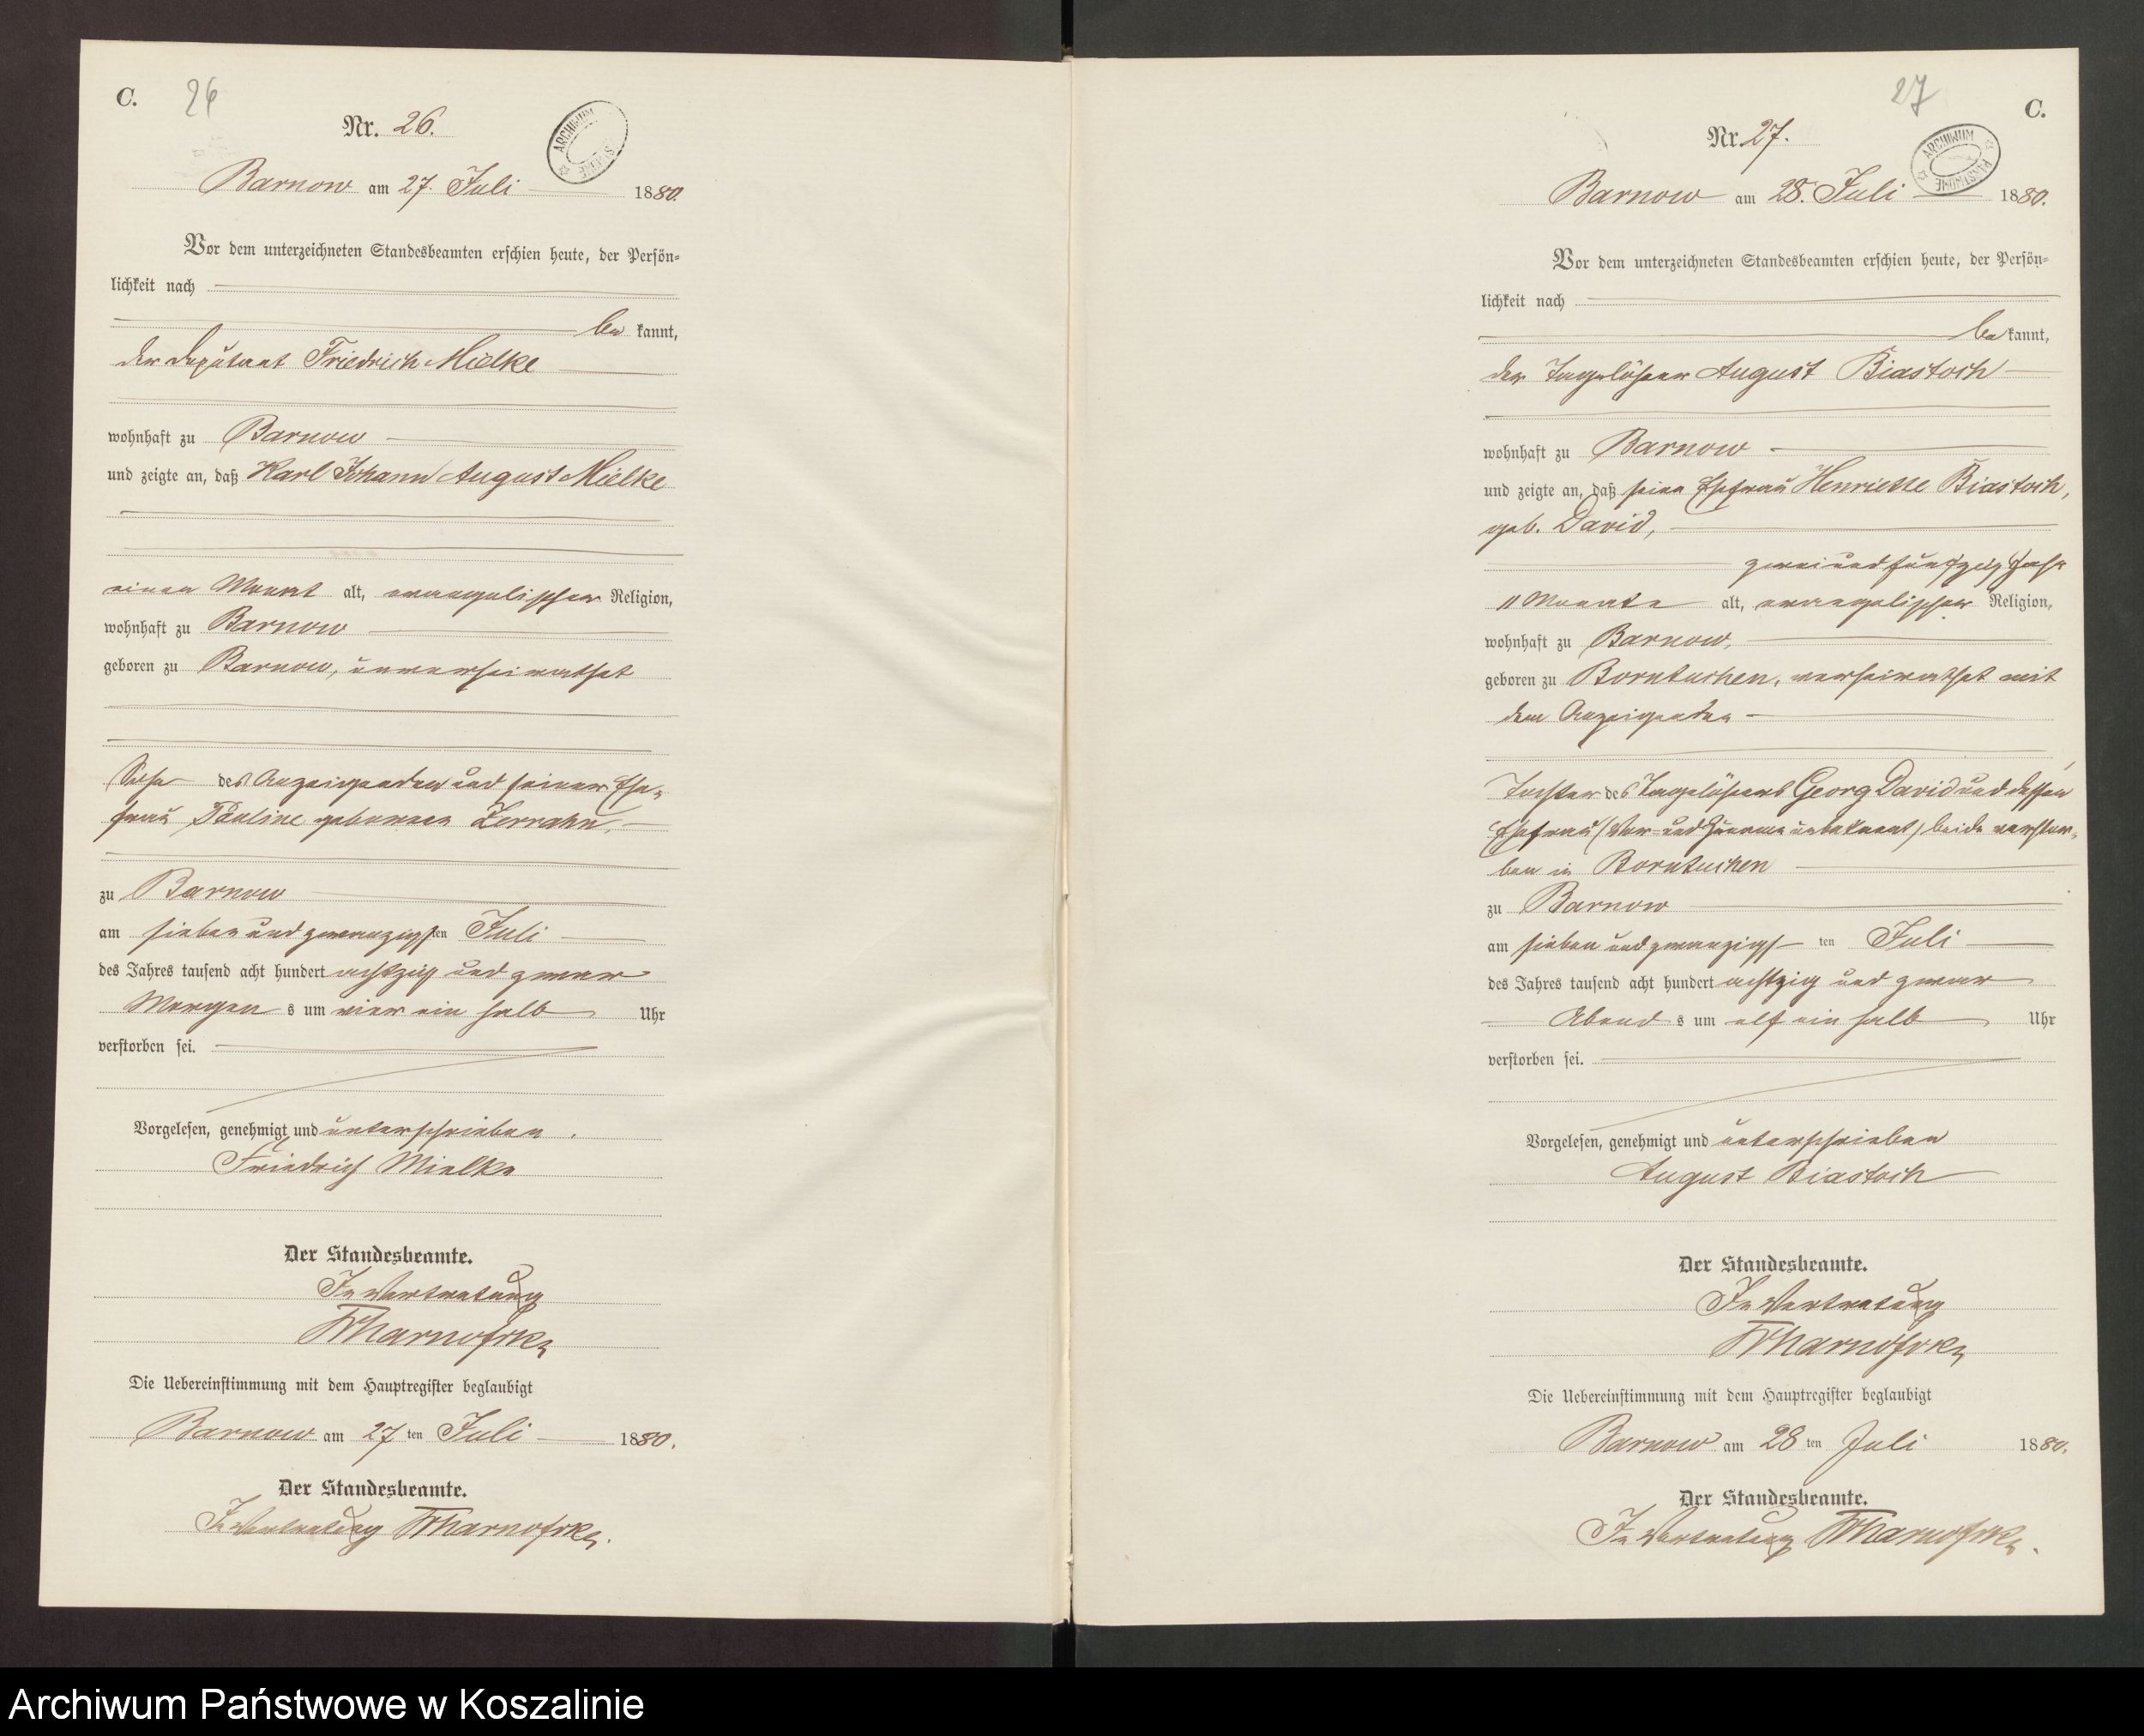 C.
26
Nr. 26.
ARCHIWUM
Barnow am 27. Juli 1880.
Vor dem unterzeichneten Standesbeamten erschien heute, der Persön-
lichkeit nach
be kannt,
der Deputant Friedrich Mielke
wohnhaft zu Barnow
und zeigte an, daß Karl Johann August Mielke
einen Monat alt, evangelischer Religion,
wohnhaft zu Barnow
geboren zu Barnow, unverheirathet
Sohn des Anzeigenden und seiner Ehe-
frau Pauline geborenen Zerrahn,
zu Barnow
am sieben und zwanzigsten Juli
des Jahres tausend acht hundert achtzig und zwar
Morgen s um vier ein halb Uhr
verstorben sei.
Vorgelesen, genehmigt und unterschrieben.
Friedrich Mielke
Der Standesbeamte.
In Vertretung
Die Uebereinstimmung mit dem Hauptregister beglaubigt
Barnow am 27 ten Juli 1880.
Der Standesbeamte.
In Vertretung
27
C.
Nr. 27.
ARCHIWUM PAŃSTWOWE
Barnow am 28. Juli 1880.
Vor dem unterzeichneten Standesbeamten erschien heute, der Persön-
lichkeit nach
be kannt,
der Tagelöhner August Biastoch
wohnhaft zu Barnow
und zeigte an, daß seine Ehefrau Henriette Biastoch,
geb. David,
zwei und fünfzig Jahr
11 Monate alt, evangelischer Religion,
wohnhaft zu Barnow,
geboren zu Borntuchen, verheirathet mit
dem Anzeigenden
Tochter des Tagelöhners Georg David und dessen
Ehefrau (Vor- und Zuname unbekannt) beide verstor-
ben in Borntuchen
zu Barnow
am sieben und zwanzigs ten Juli
des Jahres tausend acht hundert achtzig und zwar
Abend s um elf ein halb Uhr
verstorben sei.
Vorgelesen, genehmigt und unterschrieben
August Biastoch
Der Standesbeamte.
In Vertretung
Die Uebereinstimmung mit dem Hauptregister beglaubigt
Barnow am 28 ten Juli 1880.
Der Standesbeamte.
In Vertretung
Archiwum Państwowe w Koszalinie